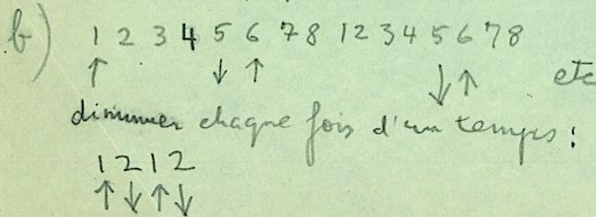 b) 1 2 3 4 5 6 7 8 1 2 3 4 5 6 7 8
↑ ↓ ↑ ↓ ↑ etc
diminuer chaque fois d'un temps :
1 2 1 2
↑ ↓ ↑ ↓